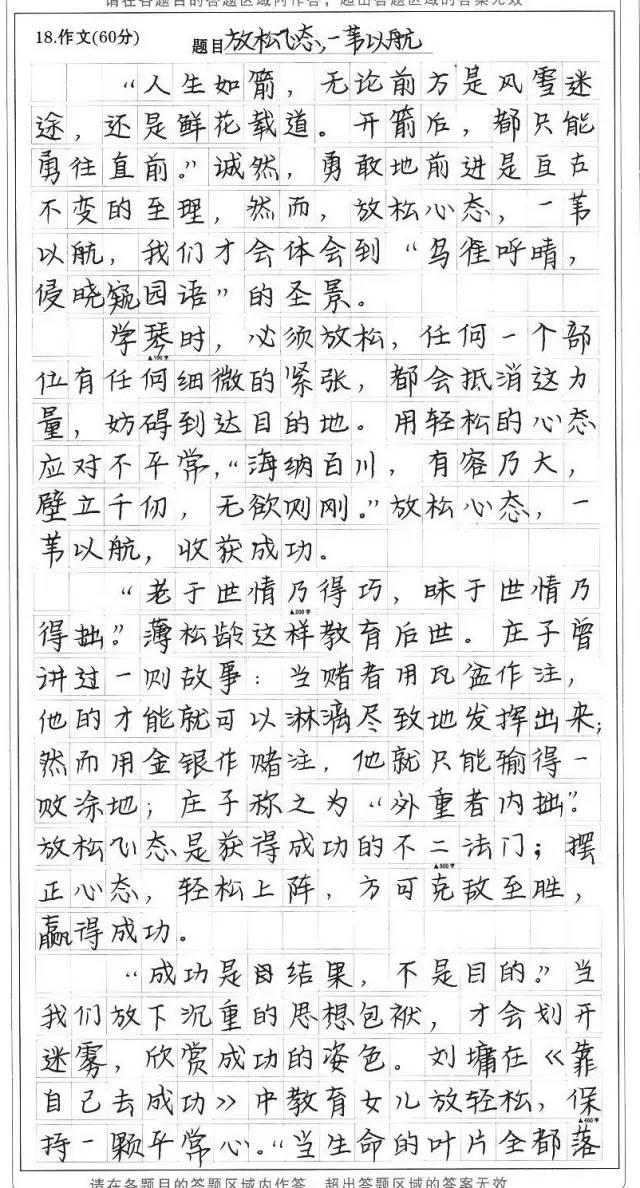 请在各题目的答题区域内作答，超出答题区域的答案无效
18.作文(60分) 题目 放松心态,一苇以航
“人生如箭，无论前方是风雪迷
途，还是鲜花载道。开箭后，都只能
勇往直前。”诚然，勇敢地前进是亘古
不变的至理，然而，放松心态，一苇
以航，我们才会体会到“鸟雀呼晴，
侵晓窥园语”的圣景。
学琴时，必须放松，任何一个部
▲100字
位有任何细微的紧张，都会抵消这力
量，妨碍到达目的地。用轻松的心态
应对不平常，“海纳百川，有容乃大，
壁立千仞，无欲则刚。”放松心态，一
苇以航，收获成功。
“老于世情乃得巧，昧于世情乃
▲200字
得拙。”薄松龄这样教育后世。庄子曾
讲过一则故事：当赌者用瓦盆作注，
他的才能就可以淋漓尽致地发挥出来；
然而用金银作赌注，他就只能输得一
败涂地；庄子称之为“外重者内拙”。
放松心态是获得成功的不二法门；摆
▲300字
正心态，轻松上阵，方可克敌至胜，
赢得成功。
“成功是结果，不是目的。”当
我们放下沉重的思想包袱，才会划开
迷雾，欣赏成功的姿色。刘墉在《靠
自己去成功》中教育女儿放轻松，保
▲400字
持一颗平常心。“当生命的叶片全都落
请在各题目的答题区域内作答，超出答题区域的答案无效